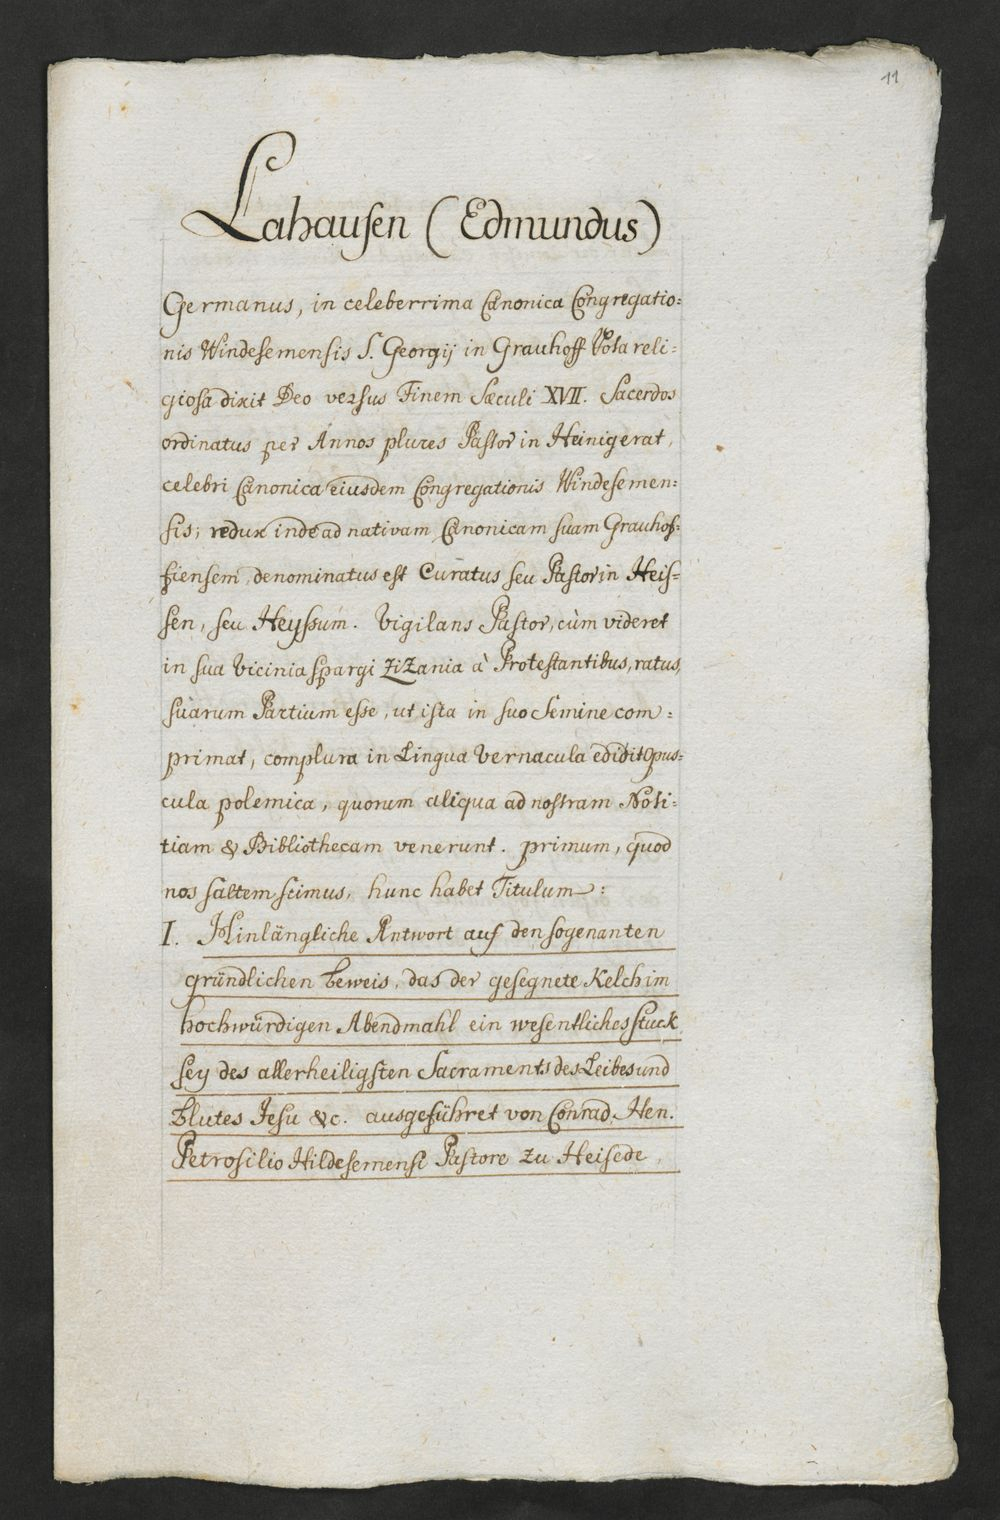 11
Lahausen (Edmundus)
Germanus, in celeberrima Canonica Congregatio=
nis Windesemensis S. Georgij in Grauhoff Vota reli=
giosa dixit Deo versus Finem Sæculi XVII. Sacerdos
ordinatus per Annos plures Pastor in Heinigerat,
celebri Canonica eiusdem Congregationis Windesemen=
sis; redux inde ad nativam Canonicam suam Grauhof=
fiensem, denominatus est Curatus seu Pastor in Heis=
sen, seu Heyssum. Vigilans Pastor, cùm videret
in sua Vicinia spargi ziZania à Protestantibus, ratus,
suarum Partium esse, ut ista in suo Semine com=
primat, complura in Lingua Vernacula edidit Opus=
cula polemica, quorum aliqua ad nostram Noti=
tiam & Bibliothecam venerunt. primum, quod
nos saltem scimus, hunc habet Titulum:
I. Hinlängliche Antwort auf den sogenanten
gründlichen beweis, das der gesegnete Kelch im
hochwürdigen Abendmahl ein wesentliches stuck
sey des allerheiligsten Sacraments des Leibes und
blutes Jesu &c. ausgeführet von Conrad. Hen.
Petrosilio Hildesemensi Pastore zu Heisede,